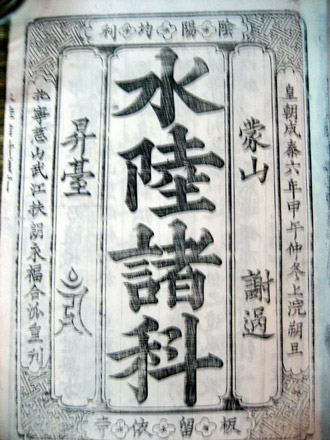 陰陽均利
皇朝成泰六年甲午仲冬上浣朔旦
蒙山 謝過
水陸諸科
昇臺
北寧慈山武江扶朗永福合
板留依寺